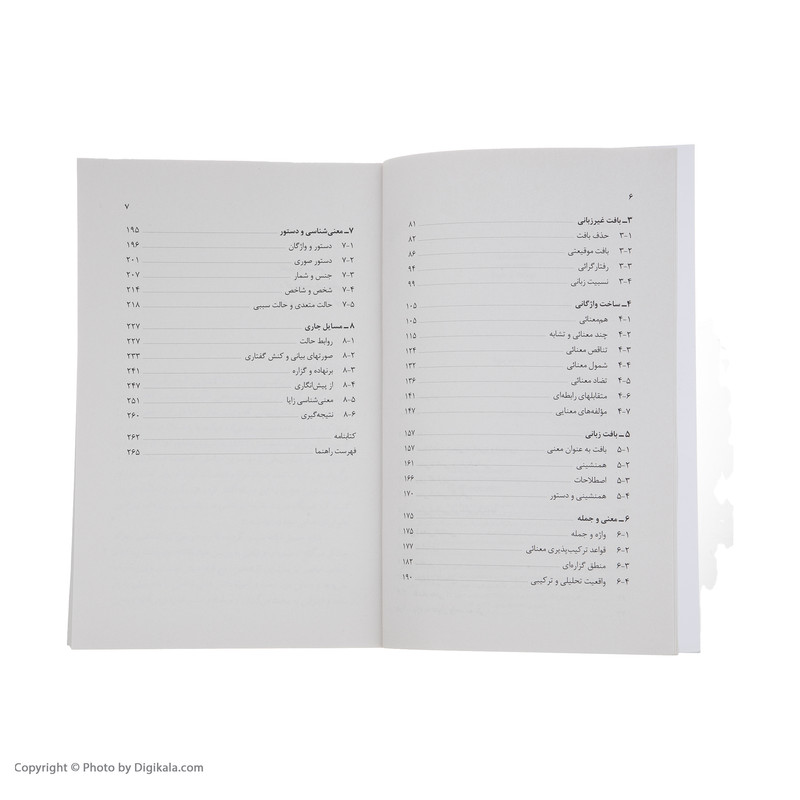 ۶
۳ــ بافت غیرزبانی ۸۱
۳-۱ حذف بافت ۸۲
۳-۲ بافت موقعیتی ۸۶
۳-۳ رفتارگرائی ۹۴
۳-۴ نسبیت زبانی ۹۹
۴ــ ساخت واژگانی ۱۰۵
۴-۱ هم‌معنائی ۱۰۵
۴-۲ چند معنائی و تشابه ۱۱۵
۴-۳ تناقض معنائی ۱۲۴
۴-۴ شمول معنائی ۱۳۲
۴-۵ تضاد معنائی ۱۳۶
۴-۶ متقابلهای رابطه‌ای ۱۴۱
۴-۷ مؤلفه‌های معنایی ۱۴۷
۵ــ بافت زبانی ۱۵۷
۵-۱ بافت به عنوان معنی ۱۵۷
۵-۲ همنشینی ۱۶۱
۵-۳ اصطلاحات ۱۶۶
۵-۴ همنشینی و دستور ۱۷۰
۶ــ معنی و جمله ۱۷۵
۶-۱ واژه و جمله ۱۷۵
۶-۲ قواعد ترکیب‌پذیری معنائی ۱۷۷
۶-۳ منطق گزاره‌ای ۱۸۲
۶-۴ واقعیت تحلیلی و ترکیبی ۱۹۰
۷
۷ــ معنی‌شناسی و دستور ۱۹۵
۷-۱ دستور و واژگان ۱۹۶
۷-۲ دستور صوری ۲۰۱
۷-۳ جنس و شمار ۲۰۷
۷-۴ شخص و شاخص ۲۱۴
۷-۵ حالت متعدی و حالت سببی ۲۱۸
۸ــ مسایل جاری ۲۲۷
۸-۱ روابط حالت ۲۲۷
۸-۲ صورتهای بیانی و کنش گفتاری ۲۳۳
۸-۳ برنهاده و گزاره ۲۴۱
۸-۴ از پیش‌انگاری ۲۴۷
۸-۵ معنی‌شناسی زایا ۲۵۱
۸-۶ نتیجه‌گیری ۲۶۰
کتابنامه ۲۶۲
فهرست راهنما ۲۶۵
Copyright © Photo by Digikala.com